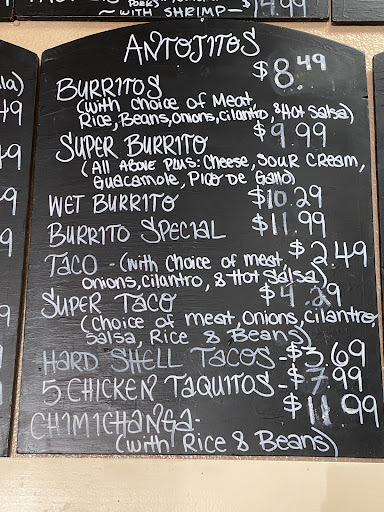 ~ WITH SHRIMP ~ $14.99
ANTOJITOS
BURRITOS $8.49
(with choice of Meat,
Rice, Beans, onions, cilantro, & Hot Salsa)
SUPER BURRITO $9.99
(All Above Plus: Cheese, Sour Cream,
Guacamole, Pico De Gallo)
WET BURRITO $10.29
BURRITO SPECIAL $11.99
TACO - (with choice of meat, $2.49
onions, cilantro, & Hot Salsa)
SUPER TACO $4.29
(choice of meat, onions, cilantro,
Salsa, Rice & Beans)
HARD SHELL TACOS - $3.69
5 CHICKEN TAQUITOS - $7.99
CHIMICHANGA - $11.99
(with Rice & Beans)